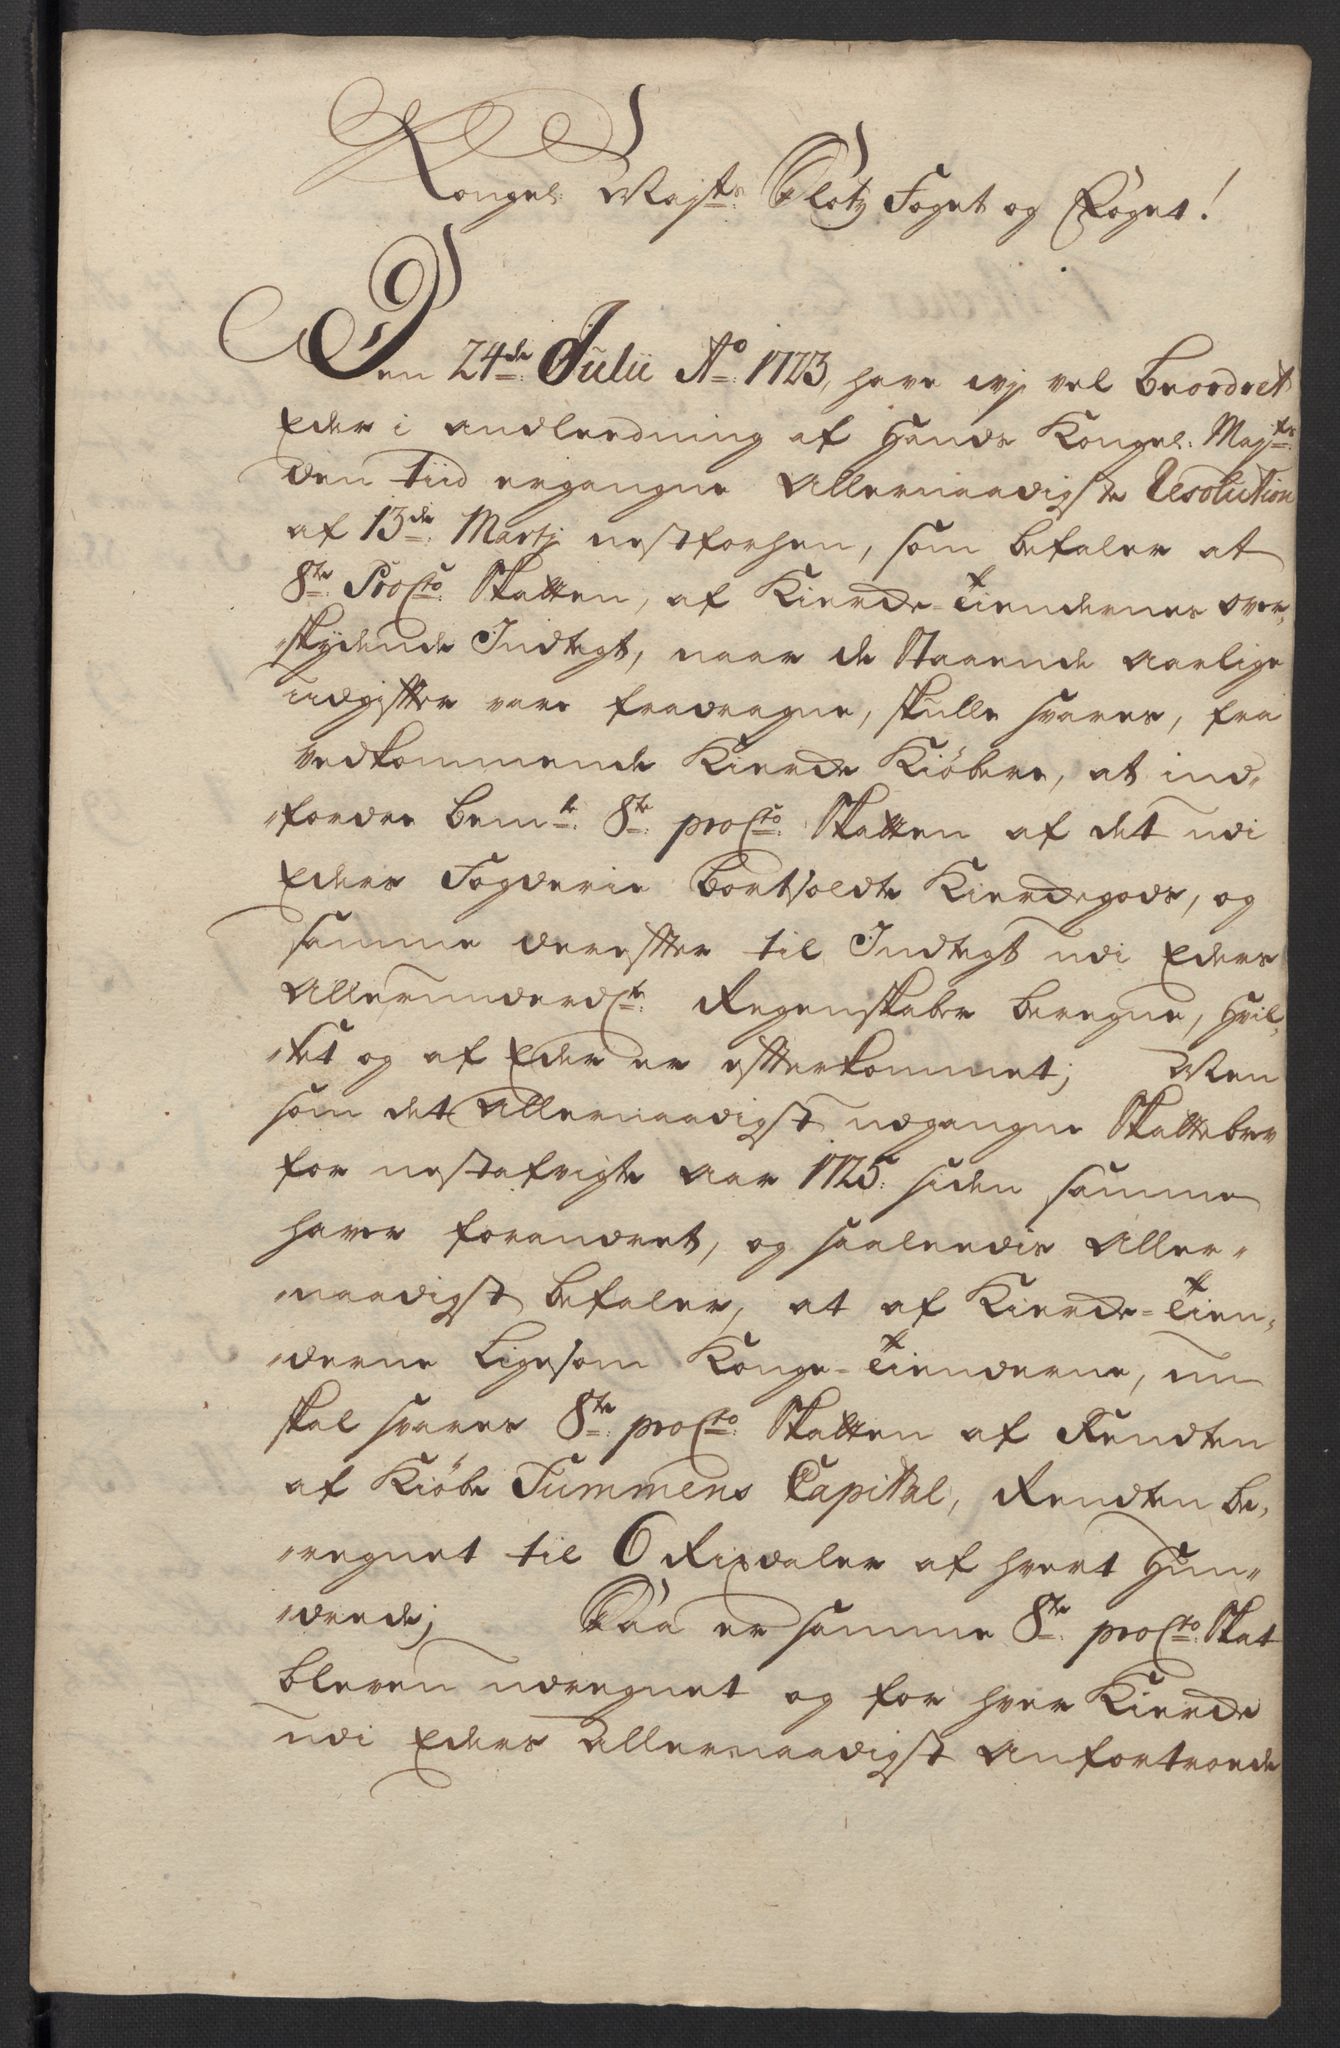 Kongel: Mayts: Slotz Foget og Foget!
Den 24de: Julii Ao: 1723, have wij vel beordret
Eder i andleedning af Hands Kongel: Mayts:
den tiid ergangne Allernaadigste Resolution
af 13de: Martij nestforhen, som befaler at
8te: ProCto: Skatten, af Kierke-Tiendernes over-
skydende Indtegt, naar de Staaende Aarlige
udgiffter vare fradragne, skulle svares, fra
vedkommende Kierke Kiöbere, at ind-
fordre bemte: 8te: proCto: Skatten af det udi
Eders Fogderie bortsoldte Kierkegods, og
samme dereffter til Indtegt udi Eders
Allerunderdte: Regenskaber beregne, hvil-
ket og af Eder er effterkommet; Men
som det Allernaadigst udgangne Skattebrev
for nestafvigte Aar 1725. siden samme
haver forandret, og saaleedis Aller-
naadigst befaler, at af Kierke-Tien-
derne Ligesom Konge-Tienderne, nu
skal svares 8te: proCto: Skatten af Rendten
af Kiöbe Summens Capital, Rendten be-
regnet til 6 Rixdaler af hvert Hun-
drede; Saa er samme 8te: proCto: Skat
bleven udregnet og for hver Kierke
udi Eders Allernaadigst Anfortroede